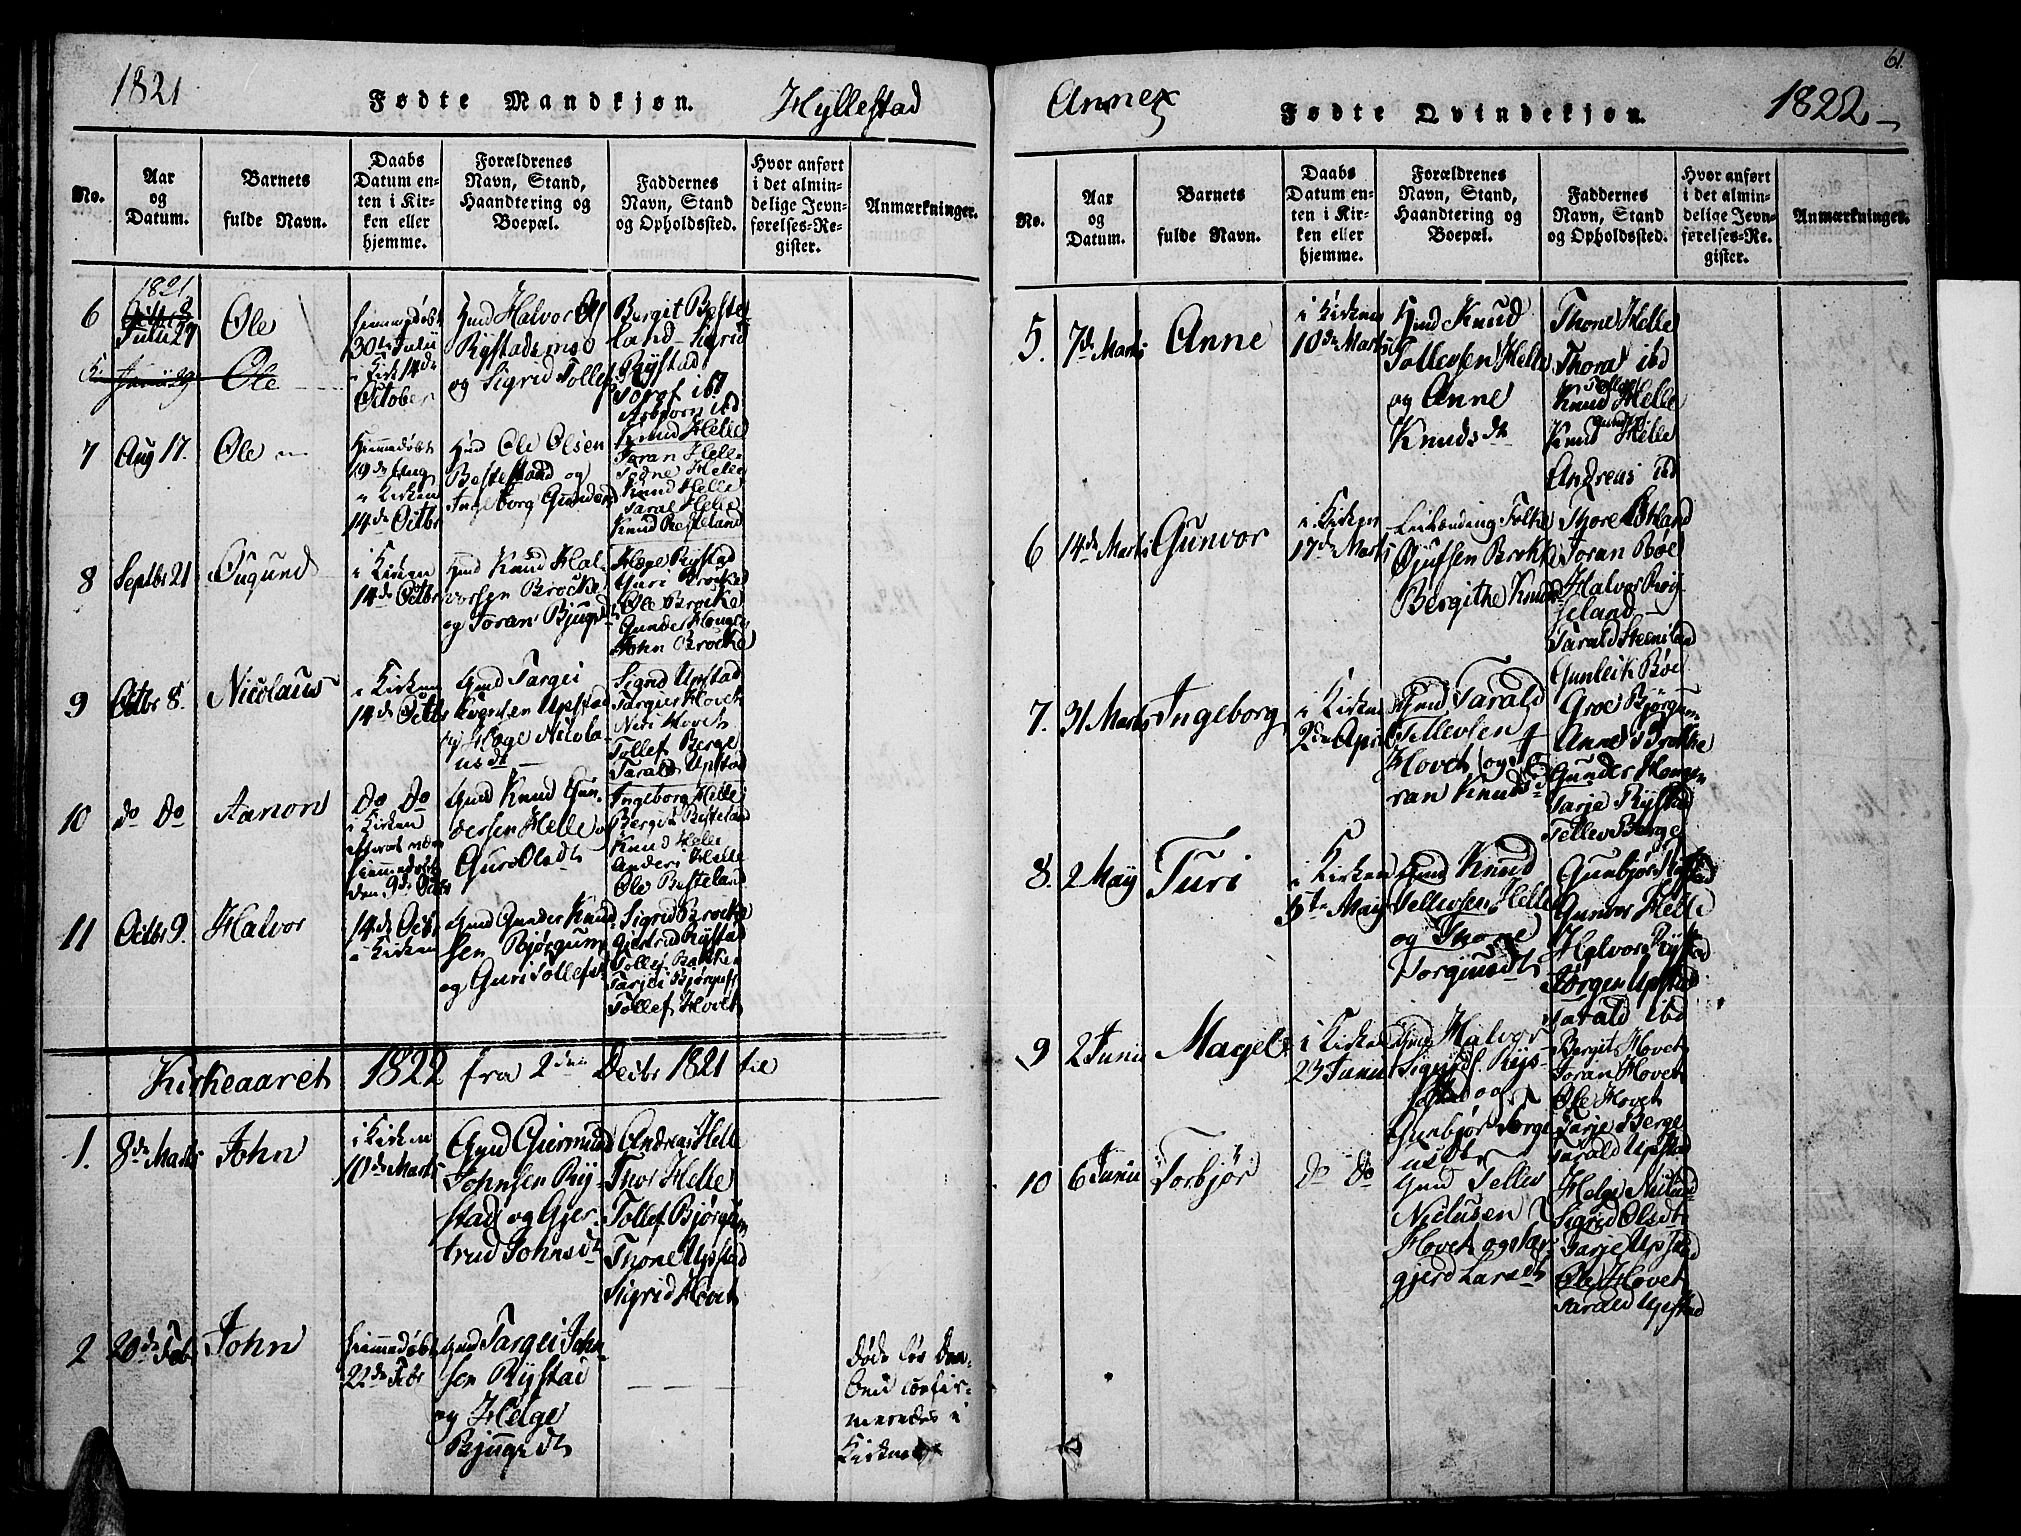 1821
Fødte Mandkjøn.
Hyllestad
No.
Aar
og
Datum.
Barnets
fulde Navn.
Daabs
Datum en-
ten i Kir-
ken eller
hjemme.
Forældrenes
Navn, Stand,
Haandtering og
Boepæl.
Faddernes
Navn, Stand
og Opholdssted.
Hvor anført
i det almin-
delige Jevn-
førelses-Re-
gister.
Anmærkninger.
6
1821
Julii 29
Ole
30te Julii
i Kirk 14de
October
Gmd Halvor Ols
Rystadsmo
og Sigrid Tollefsd
Bergit Beste
land Sigrid
Rystad
ibd
Asbjorn ibd
Knud Helle
Ole
7
Aug 17.
Ole
Hiemmedøbt
19de Aug
i Kirken
14de Octbr
Gmd Ole Olsen
Besteland og
Ingeborg Gundersd
Toran Helle
Helle
Knud Helle
Taral Helle
Knud Besteland
8
Septbr 21
Ougund
i Kirken
14de Octbr
Gmd Knud Hal
vorsen Brocke
og Toran Bjugsd
Hæge Rystad
Guri Brocke
Ole Brocke
Gunder Hougen
John Brocke
9
Octbr 8.
Nicolaus
i Kirken
14de Octbr
Gmd Targei
Evensen Upstad
og Hæge Nicola-
usdt
Sigrid Upstad
Targier Hovet
Hovet
Tollef Berge
Tarald Upstad
10
do do
Aanon
do do
i Kirken
den 9de Octbr
Gmd Knud Gun-
dersen Helle og
Guro Olsdt
Ingeborg Helle
Bergit Besteland
Knud Helle
Anders Helle
Ole Besteland
11
Octbr 9.
Halvor
14de Octbr
i Kirken
Gmd Gunder Knud
sen Bjørgum
og Guri Tollefsd
Sigrid Brocke
Giertrud Rystad
Tollef
Tarjei Bjørgum
Tollef Hovet
Kirkeaaret 1822 fra 2den Decbr 1821 til
1.
8de Marts
John
i Kirken
10de Marts
Gmd Giermund
Johnsen Ry-
stad og Gjer-
trud Johnsdt
Andreas Helle
Thor Helle
Tollef Bjørgum
Thone Upstad
Sigrid Hovet
2
20de Feb
John
Hiemmedøbt
22de Febr
Gmd Targei John
sen Rystad
og Helge
Bjugsdt
Døde før Daa-
ben confir-
meredes i
Kirken
Annex
Fødte Qvindekjøn.
1822
61.
No.
Aar
og
Datum.
Barnets
fulde Navn.
Daabs
Datum en-
ten i Kir-
ken eller
hjemme.
Forældrenes
Navn, Stand,
Haandtering og
Boepæl.
Faddernes
Navn, Stand
og Opholdssted.
Hvor anført
i det almin-
delige Jevn-
førelses-Re-
gister.
Anmærkninger.
5.
7de Marts
Anne
i Kirken
10de Marts
Gmd Knud
Tollevsen Helle
og Anne
Knudsdt
Thone Helle
Thora ibd
Knud Helle
Knud Helle
Andreas ibd
6
14de Marts
Gunvor
i Kirken
17de Marts
Folke
Ojufsen Brokke
Bergithe Knudsd
Thore
Toran Bøe
Halvor Rys-
jeland
Tarald
Gunleik Bøe
7.
31 Marts
Ingeborg
i Kirken
2de April
Gmd Tarald
Tellevsen
Hovet og To
ran Knudsd
Groe Bjørgum
Anne Brokke
Gunder Hougen
Tarje Rystad
Tellev Berge
8.
2 Maij
Turi
i Kirken
5te Maij
Gmd Knud
Tellevsen Helle
og Thone
Torgiusdt
Gunbjør Rystad
Gunvor Helle
Halvor Rystad
Jørgen Upstad
Tarald ibd
9
2 Junii
Magel
i Kirken
23 Junii
Gmd Halvor
Sigurds. Rys-
stad og
Gunbjør Torge
usdt
Bergit Hovet
Toran Hovet
Ole Hovet
Tarje Berge
Tarald Upstad
10
6 Junii
Torbjør
do do
Gmd Tellev
Nielusen
Hovet og Tar-
gjerd Larsdt
Helge Nilund
Sigrid Olsdt
Tarje Upstad
Ole Hovet
Tarald Upstad